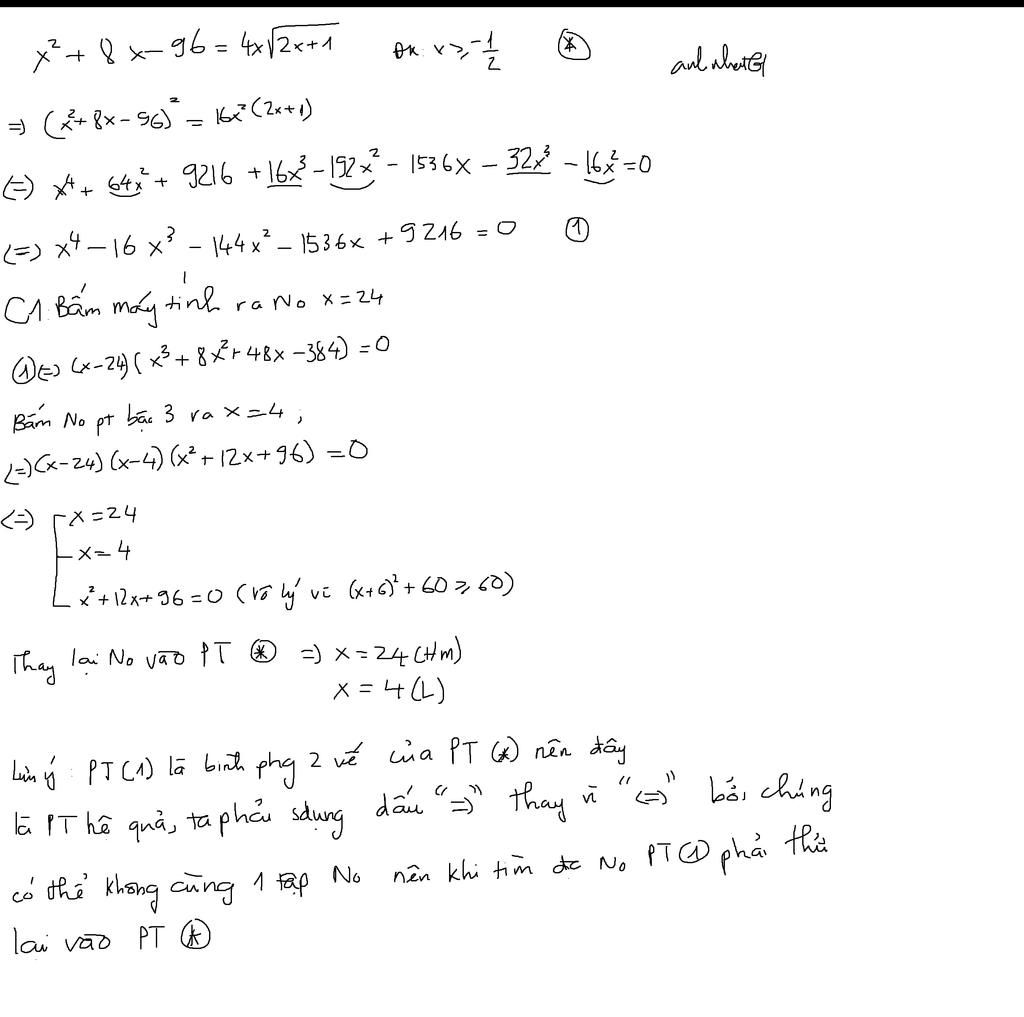 x² + 8x - 96 = 4x√(2x+1) ĐK: x ≥ -1/2 (*)
anhnhatG1
⇒ (x² + 8x - 96)² = 16x²(2x+1)
(=) x⁴ + 64x² + 9216 + 16x³ - 192x² - 1536x - 32x³ - 16x² = 0
(=) x⁴ - 16x³ - 144x² - 1536x + 9216 = 0 ①
C1: Bấm máy tính ra No x = 24
① (=) (x-24)(x³ + 8x² + 48x - 384) = 0
Bấm No pt bậc 3 ra x = 4 ;
(=) (x-24)(x-4)(x² + 12x + 96) = 0
(=) [ x = 24
x = 4
x² + 12x + 96 = 0 (Vô lý vì (x+6)² + 60 ≥ 60)
Thay lại No vào PT (*) ⇒ x = 24 (t/m)
x = 4 (L)
Lưu ý : PT(1) là bình phg 2 vế của PT (*) nên đây
là PT hệ quả, ta phải sdụng dấu "⇒" thay vì "(=)" bởi chúng
có thể không cùng 1 tập No nên khi tìm đc No PT ① phải thử
lại vào PT (*)